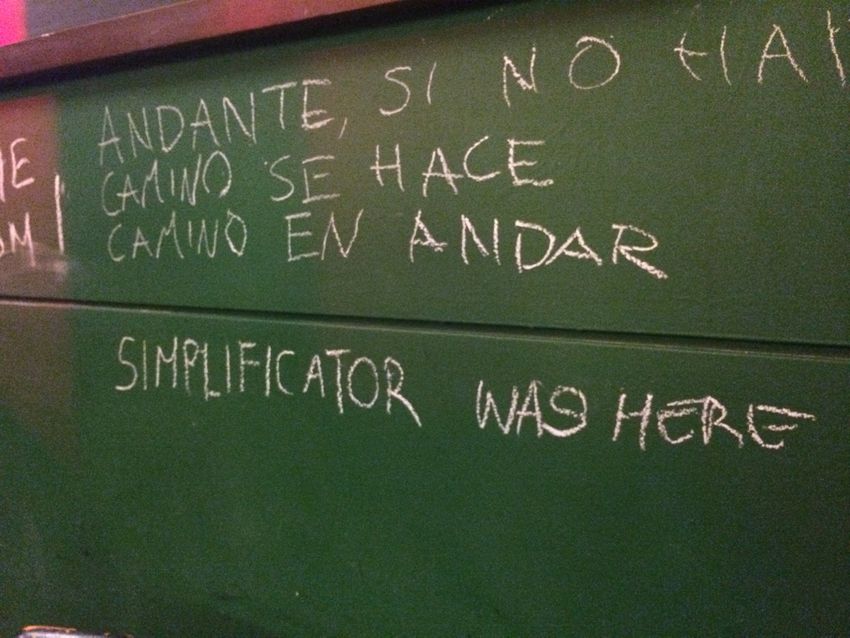 ANDANTE, SI NO HAY
CAMINO SE HACE
CAMINO EN ANDAR
SIMPLIFICATOR WAS HERE